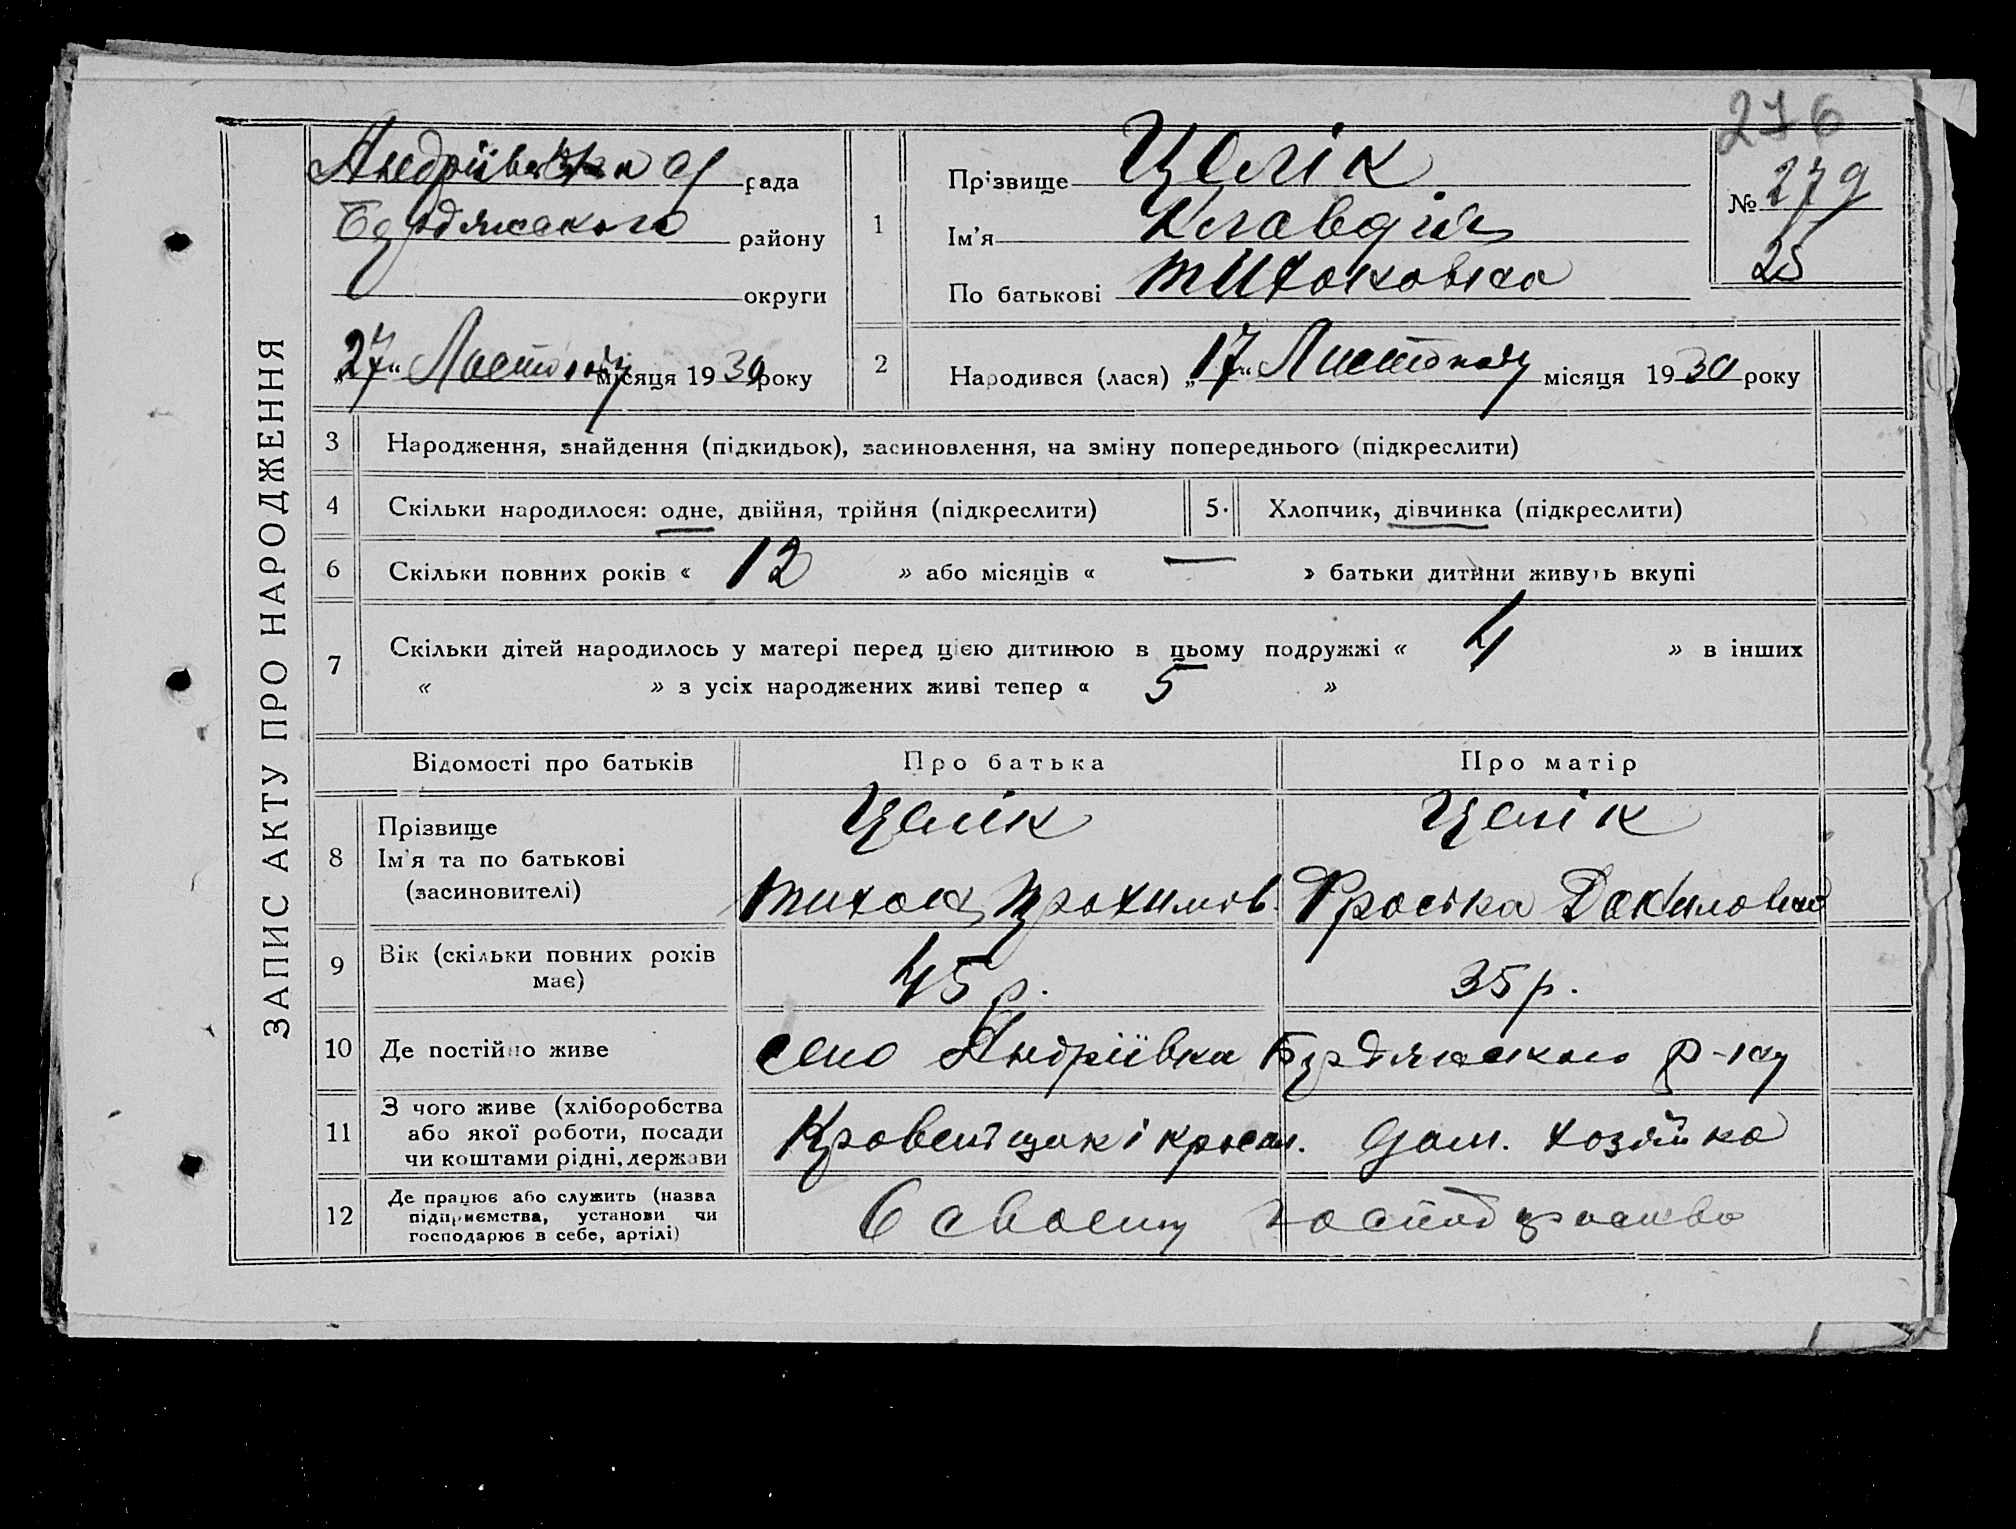 276
ЗАПИС АКТУ ПРО НАРОДЖЕННЯ
Андріївська с/ рада
Бердянського району
округи
„27“ Листопаду місяця 1930 року
1
Прізвище Целік
Ім'я Клавдія
По батькові Тихоновна
№ 279
25
2 Народився (лася) „17“ Листопаду місяця 1930 року
3 Народження, знайдення (підкидьок), засиновлення, на зміну попереднього (підкреслити)
4 Скільки народилося: одне, двійня, трійня (підкреслити) 5. Хлопчик, дівчинка (підкреслити)
6 Скільки повних років « 12 » або місяців « — » батьки дитини живуть вкупі
7 Скільки дітей народилось у матері перед цією дитиною в цьому подружжі « 4 » в інших
« » з усіх народжених живі тепер « 5 »
Відомості про батьків Про батька Про матір
8 Прізвище Целік Целік
Ім'я та по батькові
(засиновителі) Тихон Трохимов. Фросина Даниловна
9 Вік (скільки повних років має) 45 р. 35 р.
10 Де постійно живе село Андріївка Бердянського р-ну
11 З чого живе (хліборобства
або якої роботи, посади
чи коштами рідні, держави Дом. хозяйка
12 Де працює або служить (назва
підприємства, установи чи
господарює в себе, артілі) В своєму господарстве